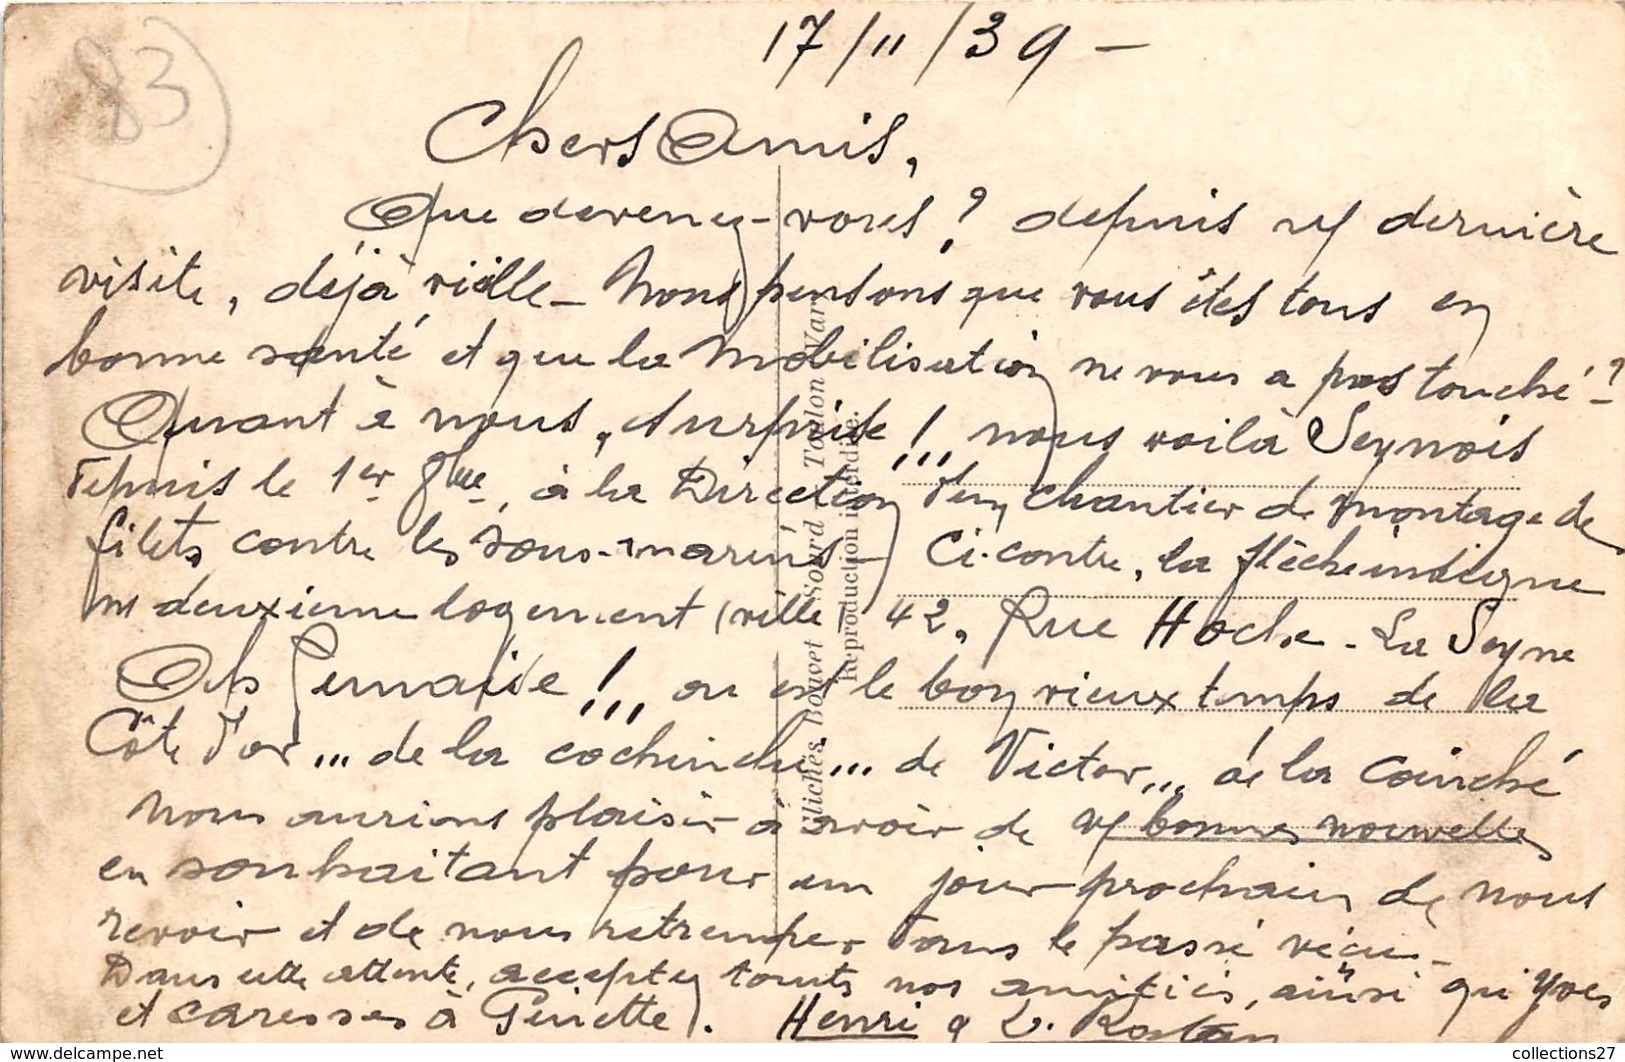 83
17/11/39 -
Chers Amis,
Que devenez-vous ? depuis vs dernière
visite, déjà vieille - Nous pensons que vous êtes tous en
bonne santé et que la mobilisation ne vous a pas touché ? -
Quant à nous, surprise !,,, nous voilà Seynois
depuis le 1er 8bre, à la Direction d'un chantier de montage de
filets contre les sous-marins - Ci-contre, la flèche indique
ne deuxième logement (ville) 42, Rue Hoche - La Seyne
Oh ! où est le bon vieux temps de la
Côte d'or ... de la cochinchi... de Victor ... de la
Nous aurions plaisir à avoir de vs bonnes nouvelles
en souhaitant pour un jour prochain de nous
revoir et de nous retremper dans le passé vécu -
Dans cette attente, acceptez toutes nos amitiés, ainsi qu'Yves
et caresses à Ginette. Henri & L. Rostan
Clichés Bouvet Sourd - Toulon (Var)
Reproduction interdite.
collections27